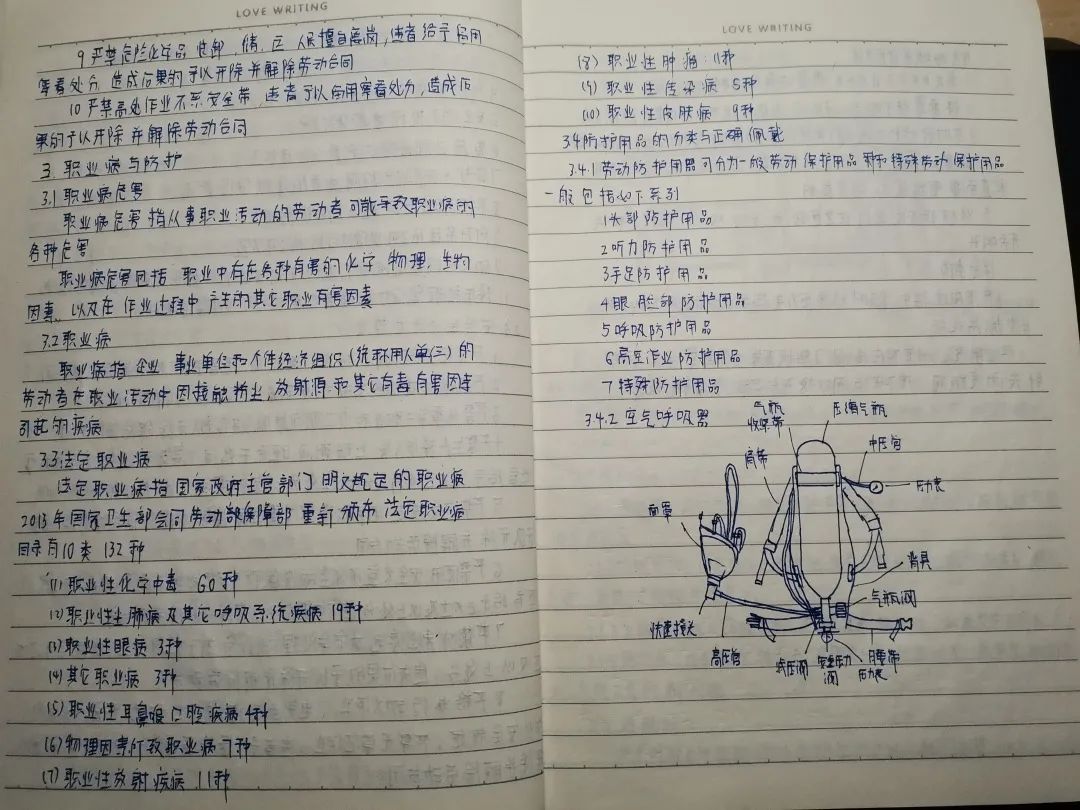 LOVE WRITING
9 严禁危险化学品装卸、储、运人员擅自离岗,违者给予留用
察看处分,造成后果的予以开除并解除劳动合同
10 严禁高处作业不系安全带,违者予以留用察看处分,造成后
果的予以开除并解除劳动合同
3. 职业病与防护
3.1 职业病危害
职业病危害指从事职业活动的劳动者可能导致职业病的
各种危害
职业病危害包括 职业中存在各种有害的化学 物理、生物
因素、以及在作业过程中产生的其它职业有害因素
3.2 职业病
职业病指企业 事业单位和个体经济组织(统称用人单位)的
劳动者在职业活动中因接触粉尘,放射源和其它有毒有害因素
引起的疾病
3.3 法定职业病
法定职业病指国家政府主管部门明文规定的职业病
2013年国家卫生部会同劳动部保障部重新颁布法定职业病
目录有10类 132种
(1) 职业性化学中毒 60种
(2) 职业性尘肺病及其它呼吸系统疾病 19种
(3) 职业性眼病 3种
(4) 其它职业病 3种
(5) 职业性耳鼻喉口腔疾病 4种
(6) 物理因素所致职业病 7种
(7) 职业性放射疾病 11种
LOVE WRITING
(8) 职业性肿瘤:11种
(9) 职业性传染病 5种
(10) 职业性皮肤病 9种
3.4 防护用品的分类与正确佩戴
3.4.1 劳动防护用品可分为一般劳动保护用品和特殊劳动保护用品
一般包括以下系列
1 头部防护用品
2 听力防护用品
3 手足防护用品
4 眼脸部防护用品
5 呼吸防护用品
6 高空作业防护用品
7 特殊防护用品
3.4.2 空气呼吸器
气瓶
收紧带
压缩气瓶
肩带
中压管
压力表
面罩
背具
气瓶阀
快速接头
高压管
减压阀
安全压力
阀
压力表
腰带